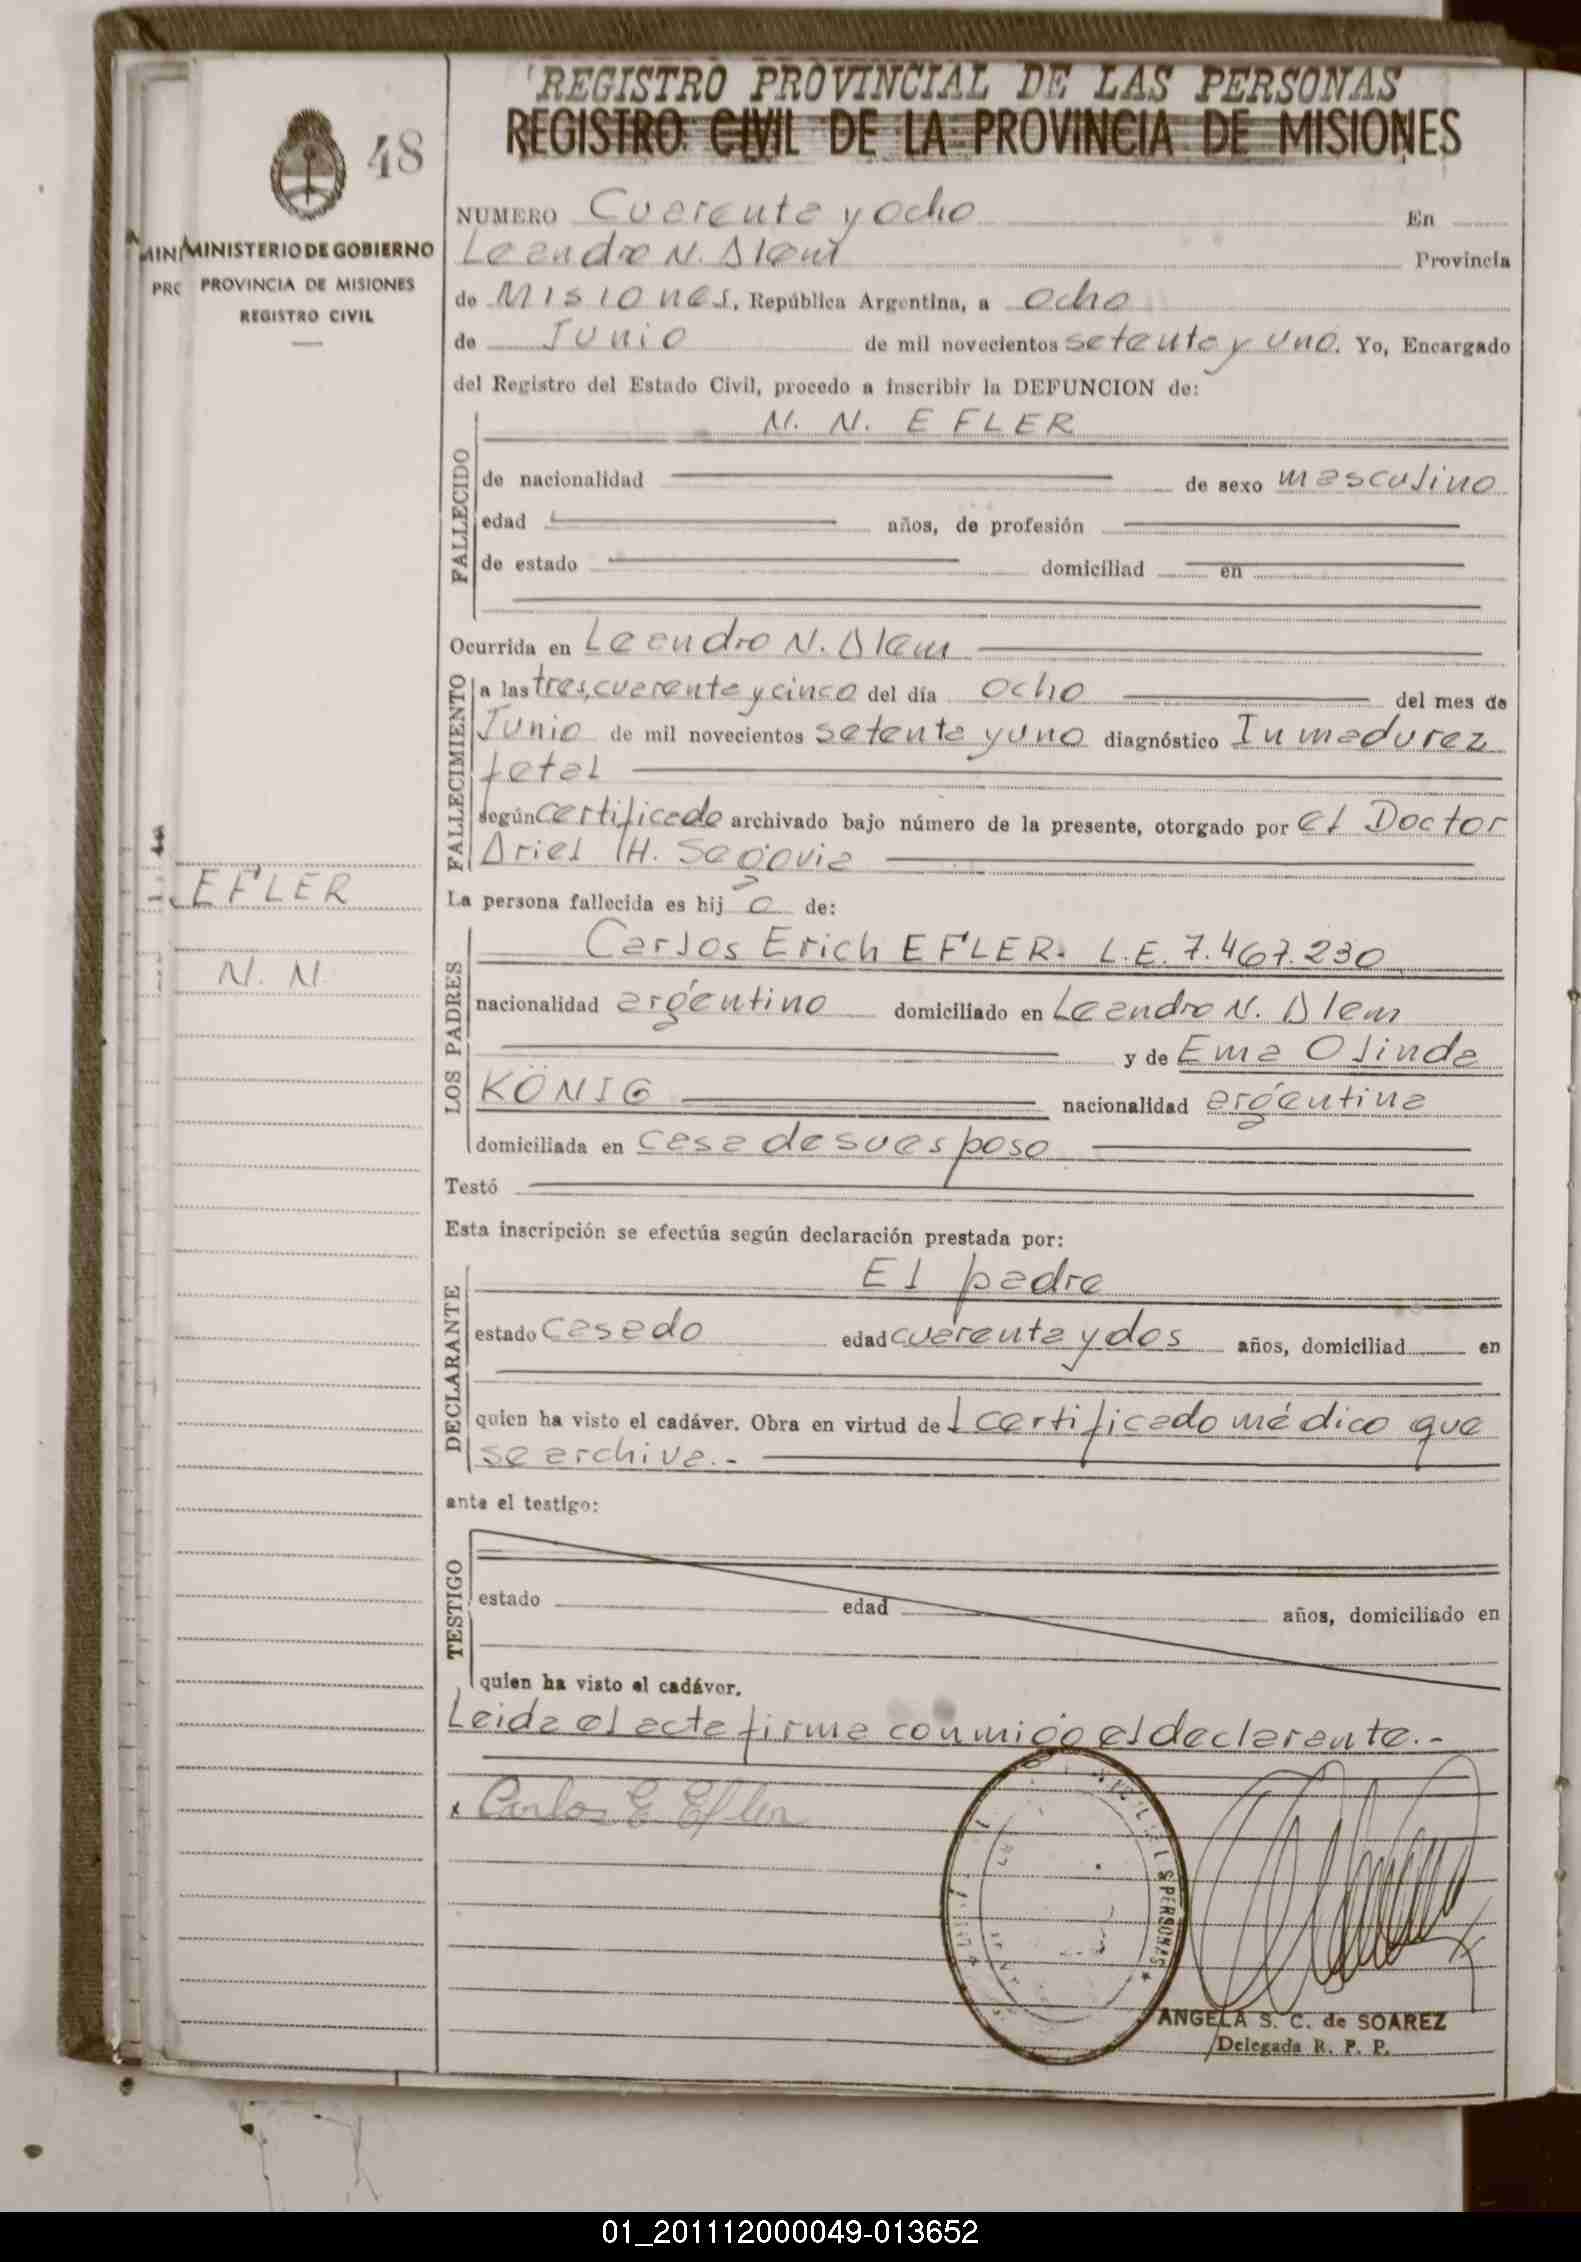 REGISTRO PROVINCIAL DE LAS PERSONAS
REGISTRO CIVIL DE LA PROVINCIA DE MISIONES
48
MINISTERIO DE GOBIERNO
PROVINCIA DE MISIONES
REGISTRO CIVIL
NUMERO Cuarenta y ocho En
Leandro N. Alem Provincia
de Misiones, República Argentina, a ocho
de Junio de mil novecientos setenta y uno. Yo, Encargado
del Registro del Estado Civil, procedo a inscribir la DEFUNCION de:
FALLECIDO
N. N. EFLER
de nacionalidad de sexo masculino
edad años, de profesión
de estado domiciliad en
Ocurrida en Leandro N. Alem
FALLECIMIENTO
a las tres, cuarenta y cinco del día ocho del mes de
Junio de mil novecientos setenta y uno diagnóstico Inmadurez
fetal
según certificado archivado bajo número de la presente, otorgado por el Doctor
Ariel H. Segovia
EFLER
N. N.
La persona fallecida es hij o de:
LOS PADRES
Carlos Erich EFLER. L.E. 7.467.230
nacionalidad argentino domiciliado en Leandro N. Alem
y de Ema Olinda
KÖNIG nacionalidad argentina
domiciliada en casa de su esposo
Testó
Esta inscripción se efectúa según declaración prestada por:
DECLARANTE
El padre
estado casado edad cuarenta y dos años, domiciliad en
quien ha visto el cadáver. Obra en virtud de 1 certificado médico que
se archiva.-
ante el testigo:
TESTIGO
estado edad años, domiciliado en
quien ha visto el cadáver.
Leida el acta firma conmigo el declarante.-
x Carlos E Efler
S PERSONAS
ANGELA S. C. de SOAREZ
Delegada R. P. P.
01_201112000049-013652